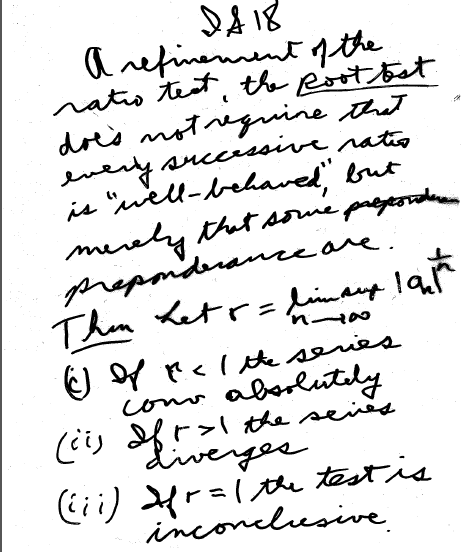 IS 18
A refinement of the
ratio test, the Root test
does not require that
every successive ratio
is "well-behaved", but
merely that some prepondera
preponderance are.
Thm Let r = lim sup |aₙ|^(1/n)
n→∞
(i) If r < 1 the series
conv absolutely
(ii) If r > 1 the series
diverges
(iii) If r = 1 the test is
inconclusive.